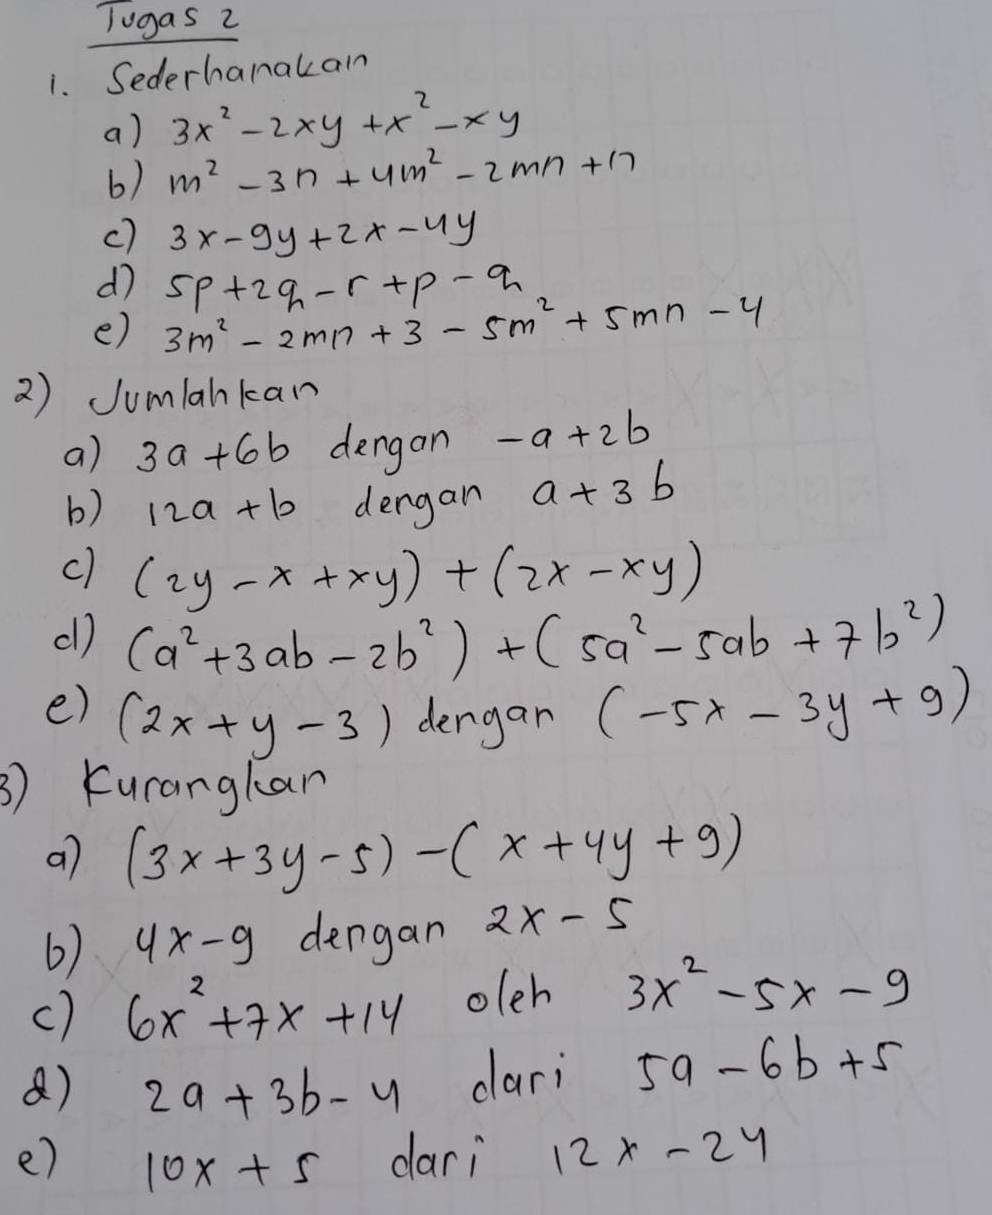 Tugas 2
1. Sederhanakan
a) 3x² - 2xy + x² - xy
b) m² - 3n + 4m² - 2mn + n
c) 3x - 9y + 2x - 4y
d) 5p + 2q - r + p - q
e) 3m² - 2mn + 3 - 5m² + 5mn - 4
2) Jumlahkan
a) 3a + 6b dengan -a + 2b
b) 12a + b dengan a + 3b
c) (2y - x + xy) + (2x - xy)
d) (a² + 3ab - 2b²) + (5a² - 5ab + 7b²)
e) (2x + y - 3) dengan (-5x - 3y + 9)
3) Kurangkan
a) (3x + 3y - 5) - (x + 4y + 9)
b) 4x - 9 dengan 2x - 5
c) 6x² + 7x + 14 oleh 3x² - 5x - 9
d) 2a + 3b - 4 dari 5a - 6b + 5
e) 10x + 5 dari 12x - 24